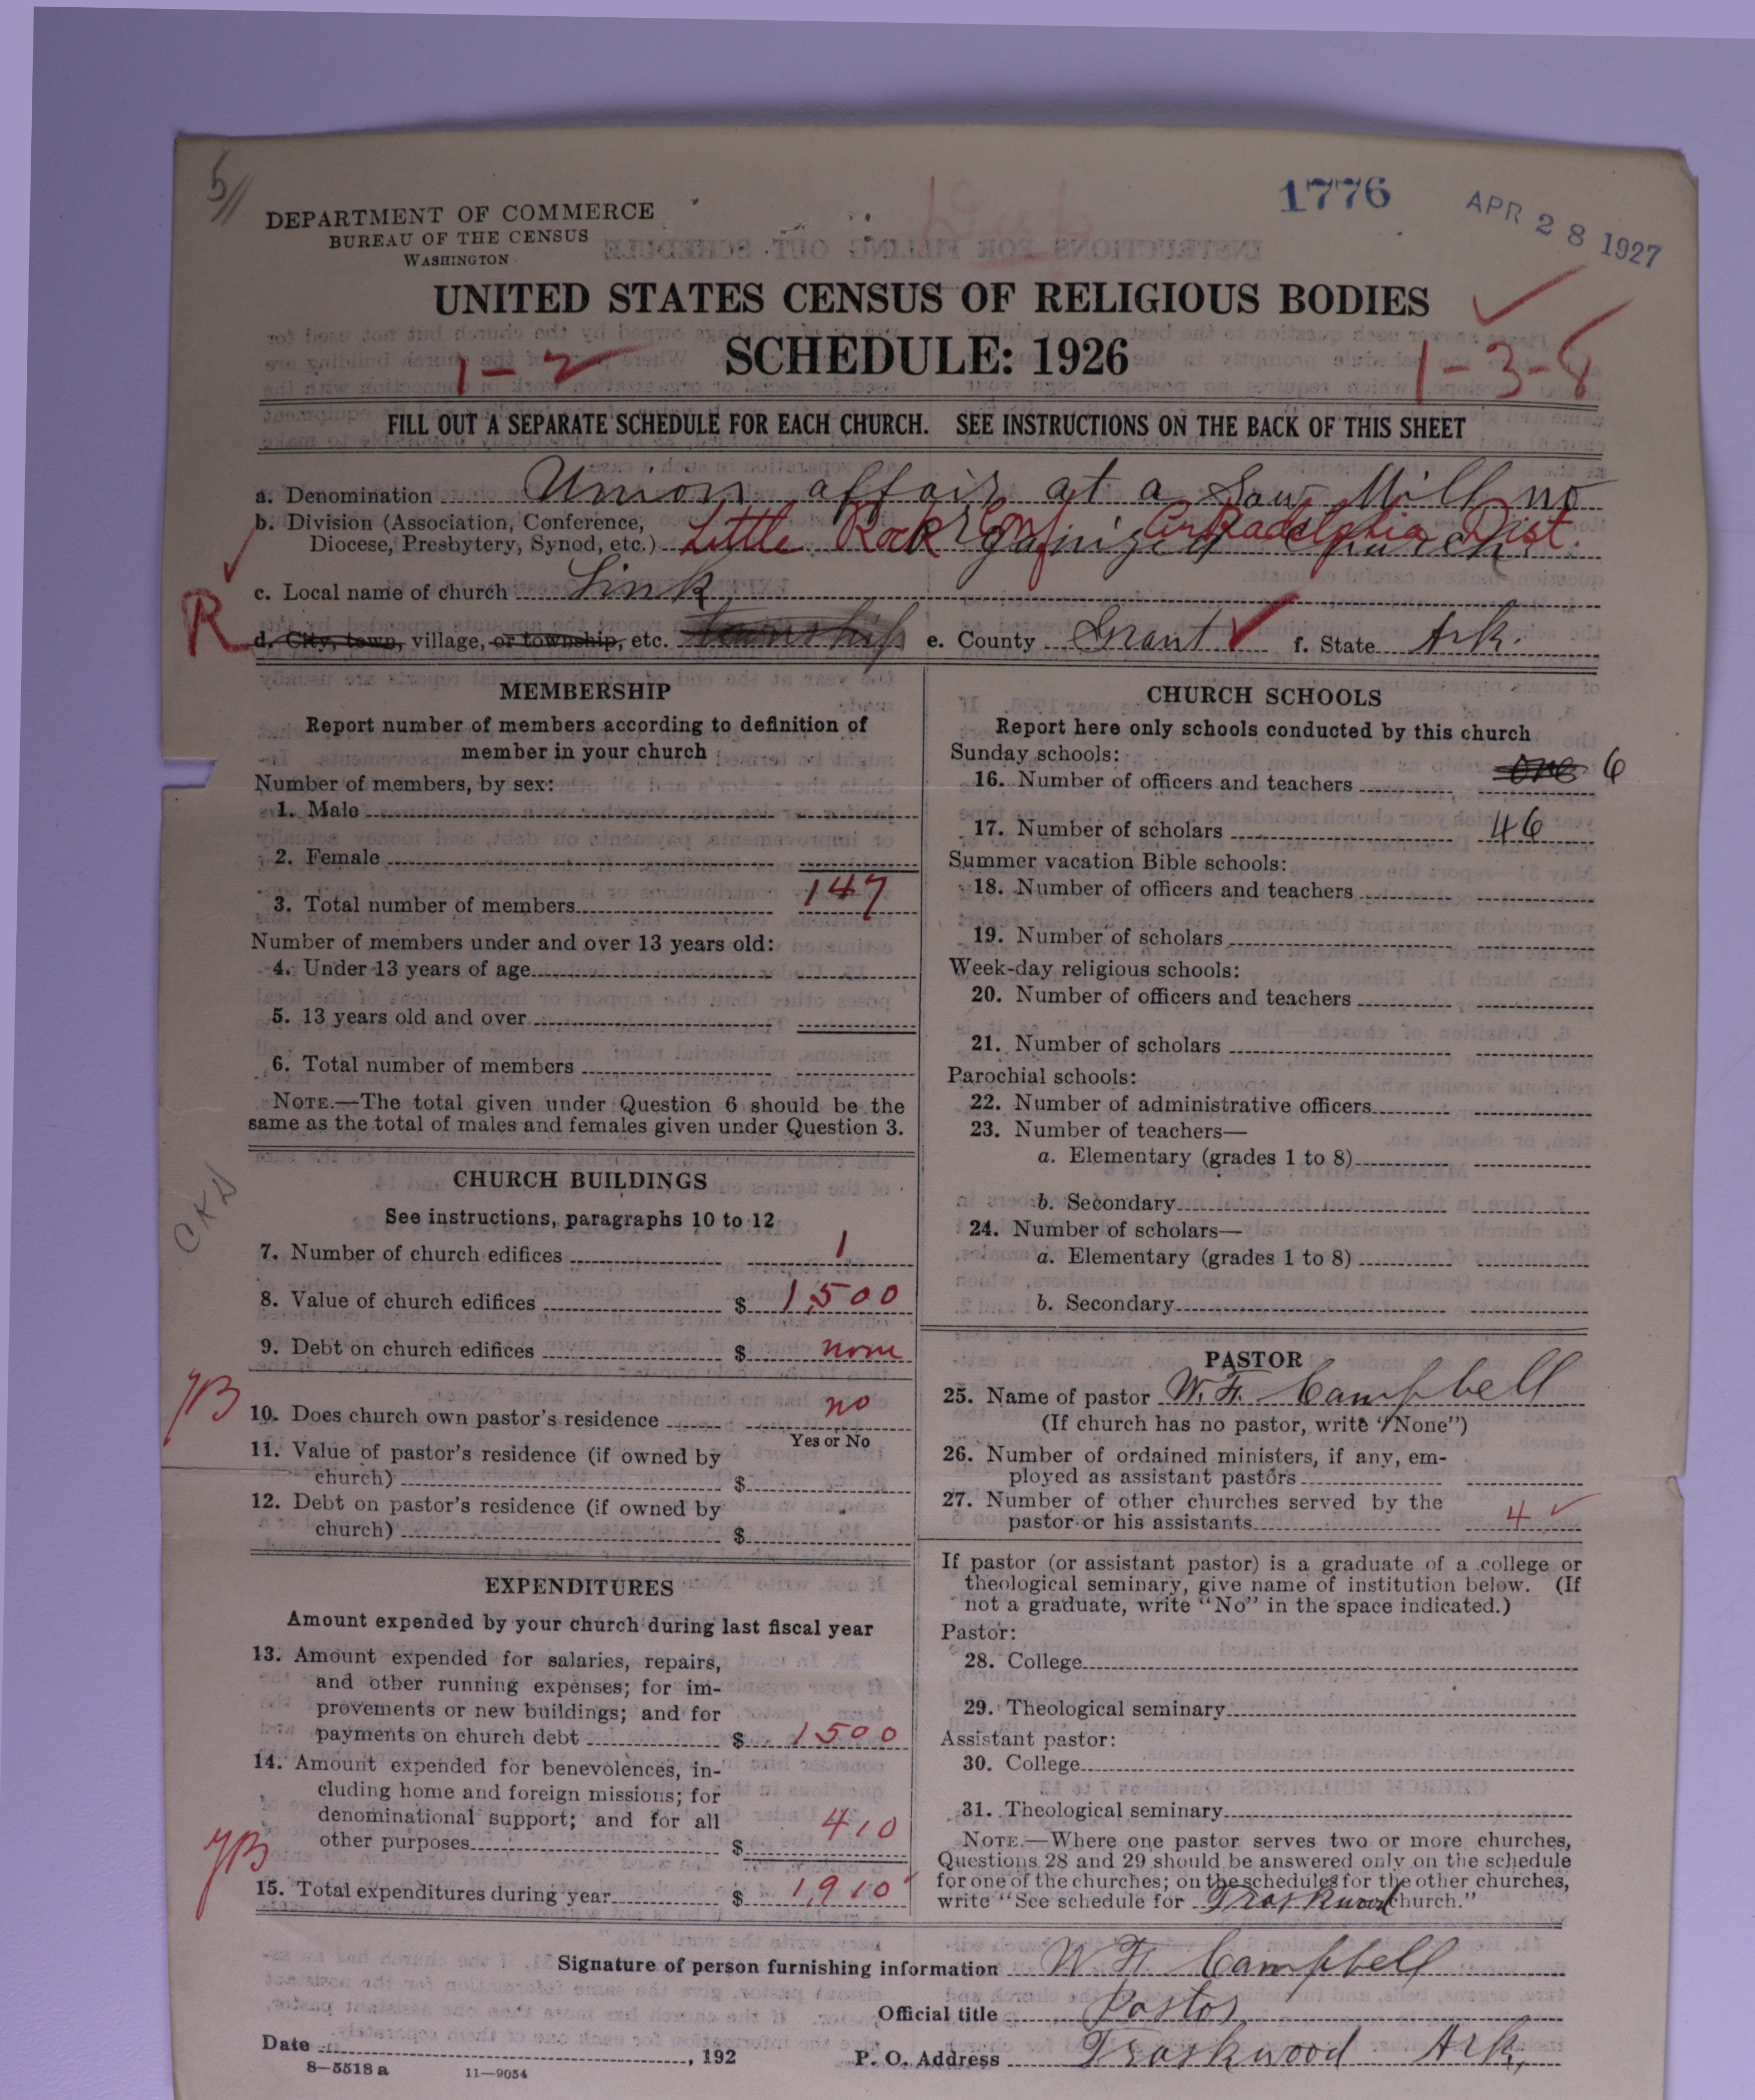 5//
1776
APR 28 1927
DEPARTMENT OF COMMERCE
BUREAU OF THE CENSUS
WASHINGTON
UNITED STATES CENSUS OF RELIGIOUS BODIES
SCHEDULE: 1926
1-2
1-3-8
FILL OUT A SEPARATE SCHEDULE FOR EACH CHURCH. SEE INSTRUCTIONS ON THE BACK OF THIS SHEET
a. Denomination Union affair at a Saw Mill no
b. Division (Association, Conference,
Diocese, Presbytery, Synod, etc.) organized church.
Little Rock Conf. Arkadelphia Dist.
c. Local name of church Sink
R
d. City, town, village, or township, etc. township e. County Grant f. State Ark.
MEMBERSHIP
Report number of members according to definition of
member in your church
Number of members, by sex:
1. Male
2. Female
3. Total number of members 147
Number of members under and over 13 years old:
4. Under 13 years of age
5. 13 years old and over
6. Total number of members
NOTE.—The total given under Question 6 should be the
same as the total of males and females given under Question 3.
CHURCH BUILDINGS
CKD
See instructions, paragraphs 10 to 12
7. Number of church edifices 1
8. Value of church edifices $ 1500
9. Debt on church edifices $ none
YB
10. Does church own pastor's residence no
Yes or No
11. Value of pastor's residence (if owned by
church) $
12. Debt on pastor's residence (if owned by
church) $
EXPENDITURES
Amount expended by your church during last fiscal year
13. Amount expended for salaries, repairs,
and other running expenses; for im-
provements or new buildings; and for
payments on church debt $ 1500
14. Amount expended for benevolences, in-
cluding home and foreign missions; for
denominational support; and for all
other purposes $ 410
YB
15. Total expenditures during year $ 1910
CHURCH SCHOOLS
Report here only schools conducted by this church
Sunday schools:
16. Number of officers and teachers one 6
17. Number of scholars 46
Summer vacation Bible schools:
18. Number of officers and teachers
19. Number of scholars
Week-day religious schools:
20. Number of officers and teachers
21. Number of scholars
Parochial schools:
22. Number of administrative officers
23. Number of teachers—
a. Elementary (grades 1 to 8)
b. Secondary
24. Number of scholars—
a. Elementary (grades 1 to 8)
b. Secondary
PASTOR
25. Name of pastor W. F. Campbell
(If church has no pastor, write "None")
26. Number of ordained ministers, if any, em-
ployed as assistant pastors
27. Number of other churches served by the
pastor or his assistants 4
If pastor (or assistant pastor) is a graduate of a college or
theological seminary, give name of institution below. (If
not a graduate, write "No" in the space indicated.)
Pastor:
28. College
29. Theological seminary
Assistant pastor:
30. College
31. Theological seminary
NOTE.—Where one pastor serves two or more churches,
Questions 28 and 29 should be answered only on the schedule
for one of the churches; on the schedules for the other churches,
write "See schedule for Traskwood church."
Signature of person furnishing information W. F. Campbell
Official title Pastor
Date , 192 P. O. Address Traskwood Ark.
8—5518 a 11—9054